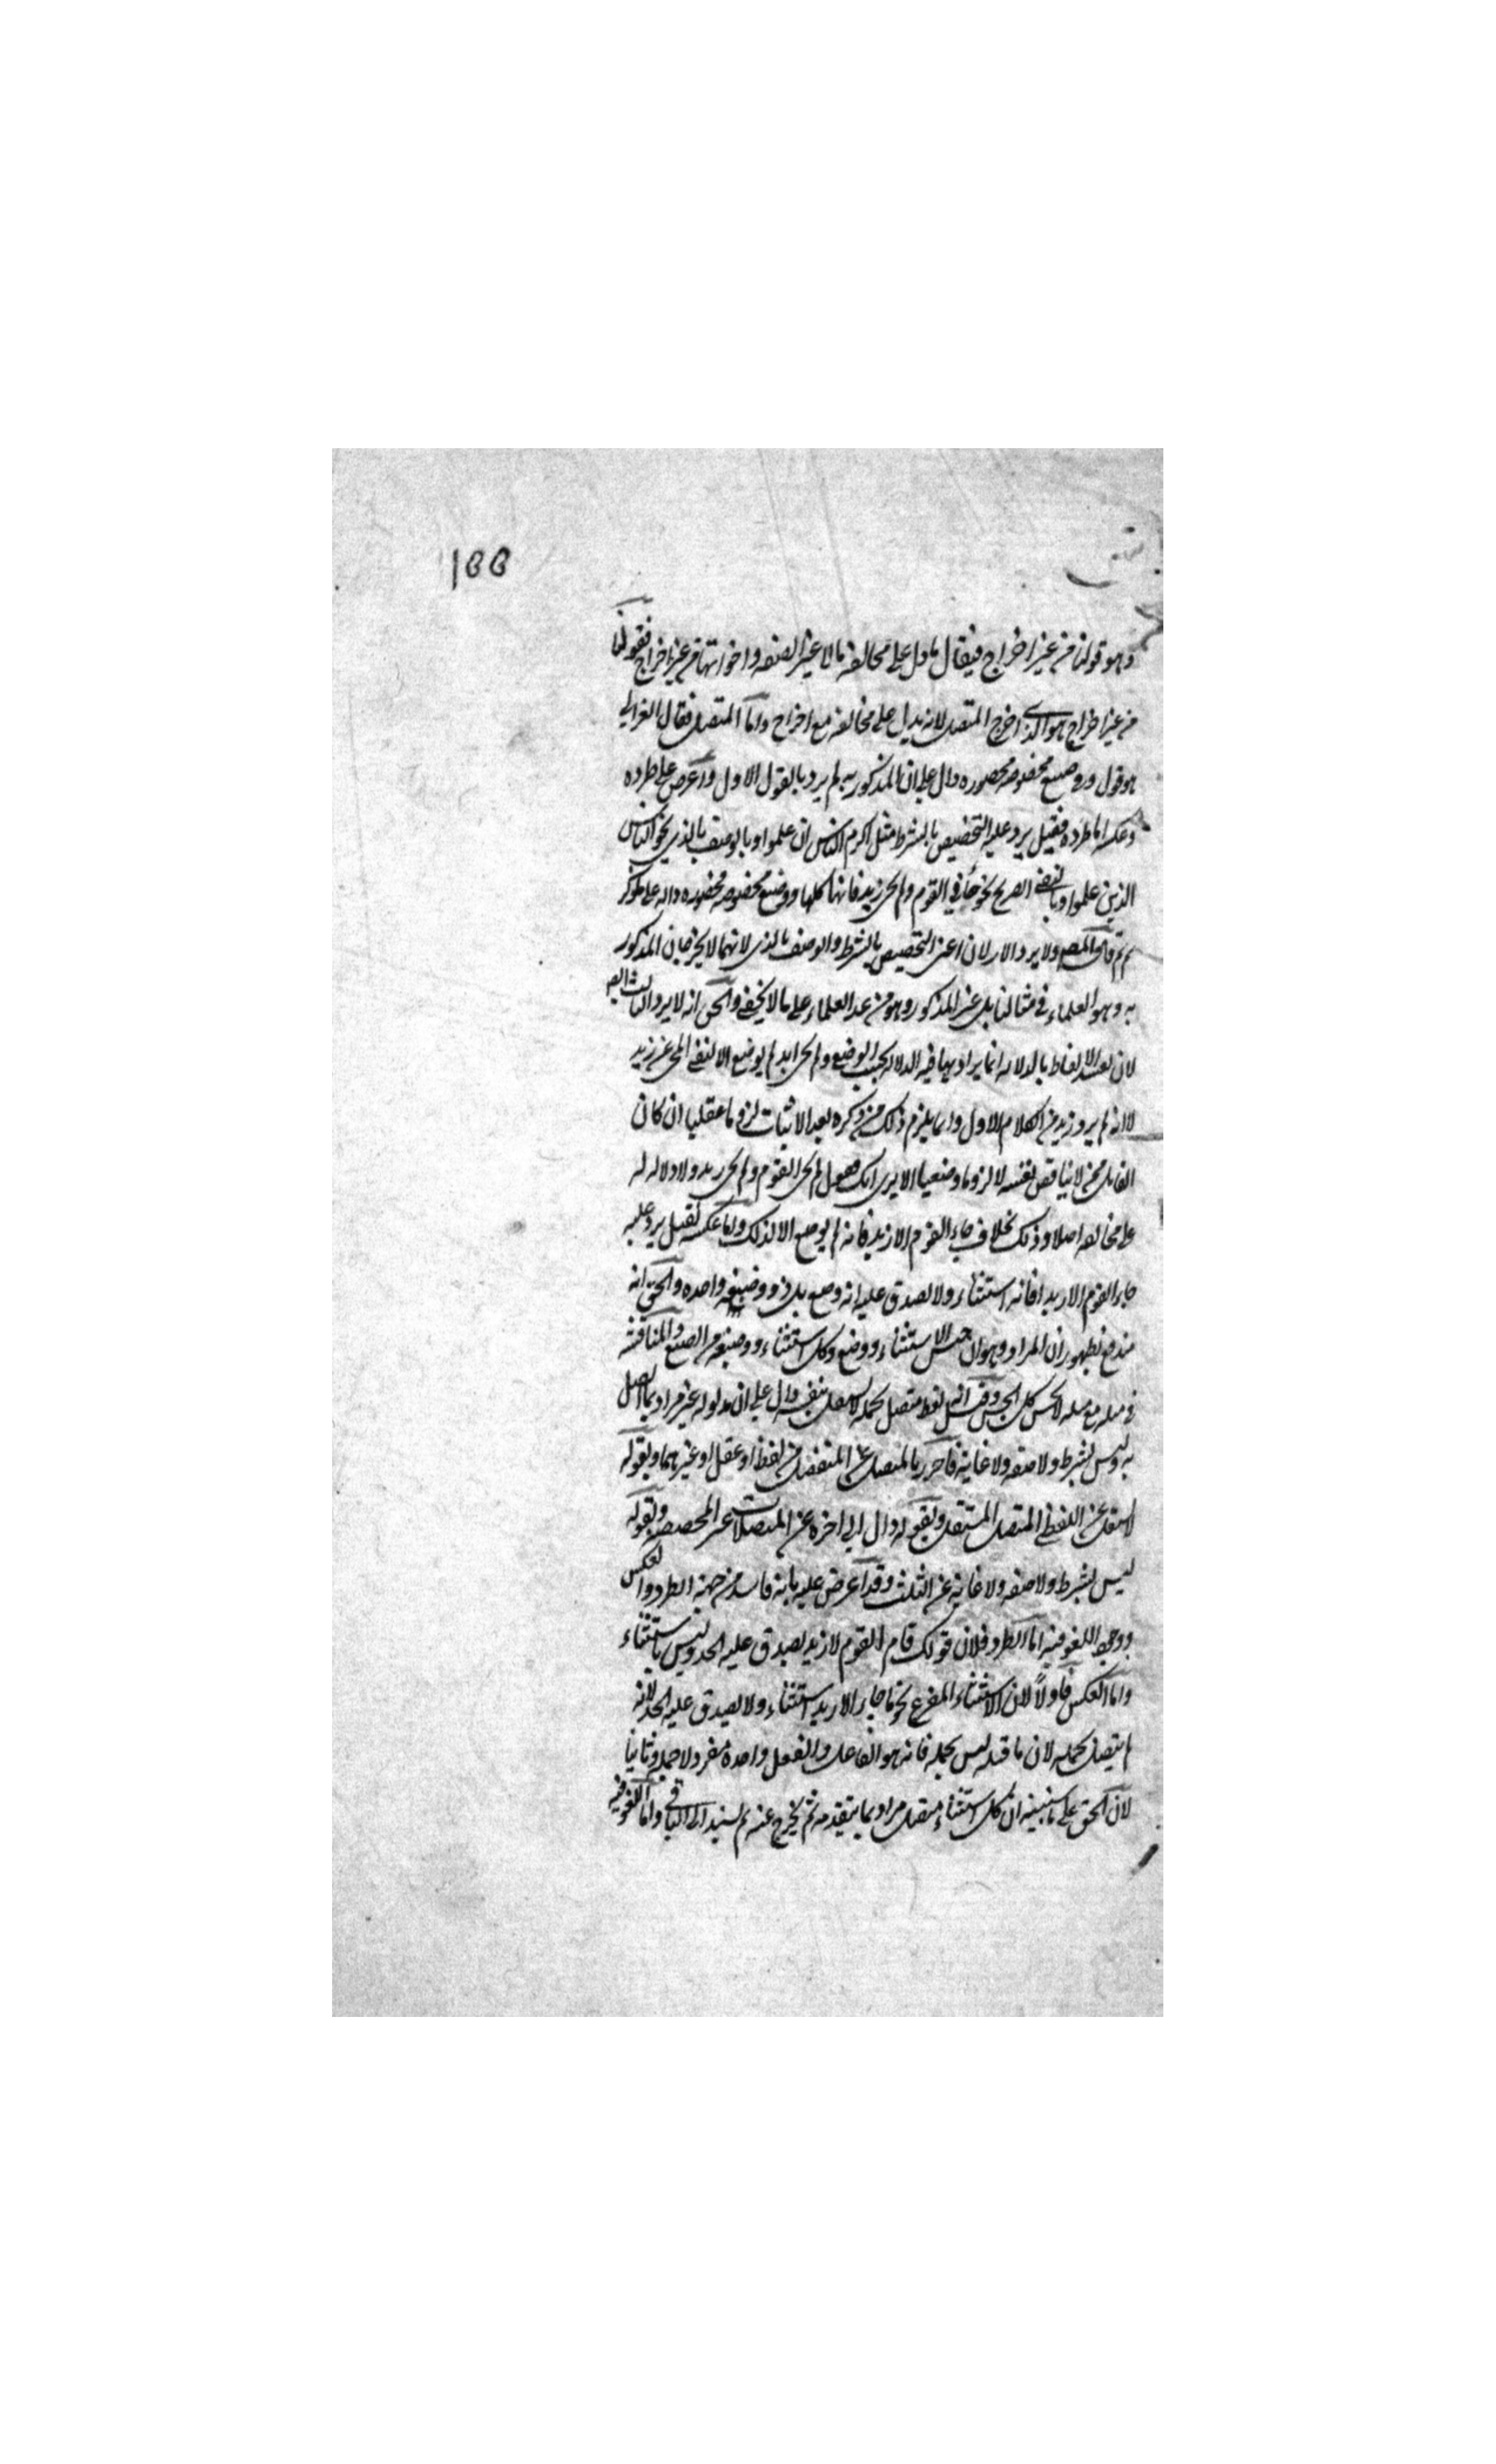 ١٥٥
وهو قولنا من غير اخراج فيقال ما دل على مخالفه بالا غير الصفه واخواتها من غير اخراج فقولنا
من غير اخراج هو الذى اخرج المتصل لانه يدل على مخالفه مع اخراج واما المتصل فقال الغزالي
هو قول ذو صيغ مخصوصه محصوره دال على ان المذكور به لم يرد بالقول الاول واعترض على طرده
وعكسه اما طرده فقيل يرد عليه التخصيص بالشرط مثل اكرم الناس ان علموا وبالوصف بالذي نحو الناس
الذين علموا وبالنفي الصريح نحو جاءني القوم ولم يجئ زيد فانها كلها ذو صيغ مخصوصه محصوره داله على ما ذكر
ثم قال المص ولا يرد الاولان اعني التخصيص بالشرط والوصف بالذى لانهما لا يخرجان المذكور
به وهو العلماء في مثالنا بل غير المذكور وهو من عدا العلماء على ما لا يخفى والحق انه لا يرد الثالث ايضا
لان الالفاظ بالدلاله انما يراد بها فيه الدلاله بحسب الوضع ولم يجئ زيد لم يوضع الا لنفي المجئ عن زيد
لا انه لم يرد زيد من الكلام الاول وانما يلزم ذلك من ذكره بعد الاثبات لزوما عقليا ان كان
القائل ممن لا يناقض نفسه لا لزوما وضعيا الا يرى انك تقول لم يجئ القوم ولم يجئ زيد ولا دلاله له
على مخالفه اصلا وذلك بخلاف جاء القوم الا زيد فانه لم يوضع الا لذلك واما عكسه فقيل يرد عليه
جاء القوم الا زيدا فانه استثناء ولا يصدق عليه انه ذو صيغ بل ذو صيغه واحده والحق انه
مندفع لظهور ان المراد وهو ان جنس الاستثناء ذو صيغ وكل استثناء ذو صيغه من الصيغ والمناقشه
في مثله مع مثله لا يحسن كل الحسن وقيل انه لفظ متصل بجمله لا يستقل بنفسه دال على ان مدلوله غير مراد بما اتصل
به وليس بشرط ولا صفه ولا غايه فاحترز بالمتصل عن المنفصل من لفظ او عقل او غيرهما وبقوله
لا يستقل عن اللفظي المتصل المستقل وبقوله دال الى اخره عن المتصلات غير المخصصه وبقوله
ليس بشرط ولا صفه ولا غايه عن الثلث وقد اعترض عليه بانه فاسد من جهة الطرد والعكس
ووجود اللغو فيه اما الطرد فلان قولك قام القوم لا زيد يصدق عليه الحد وليس باستثناء
واما العكس فاولا لان الاستثناء المفرغ نحو ما جاء الا زيد استثناء ولا يصدق عليه الحد لانه
لم يتصل بجمله لان ما قبله ليس بجمله فانه هو الفاعل والفعل وحده مفرد لا جمله وثانيا
لان الحق على ما سنبينه ان كل استثناء متصل مراد بما يتقدمه ثم يخرج عنه ثم يسند الى الباقي واما اللغو فيه